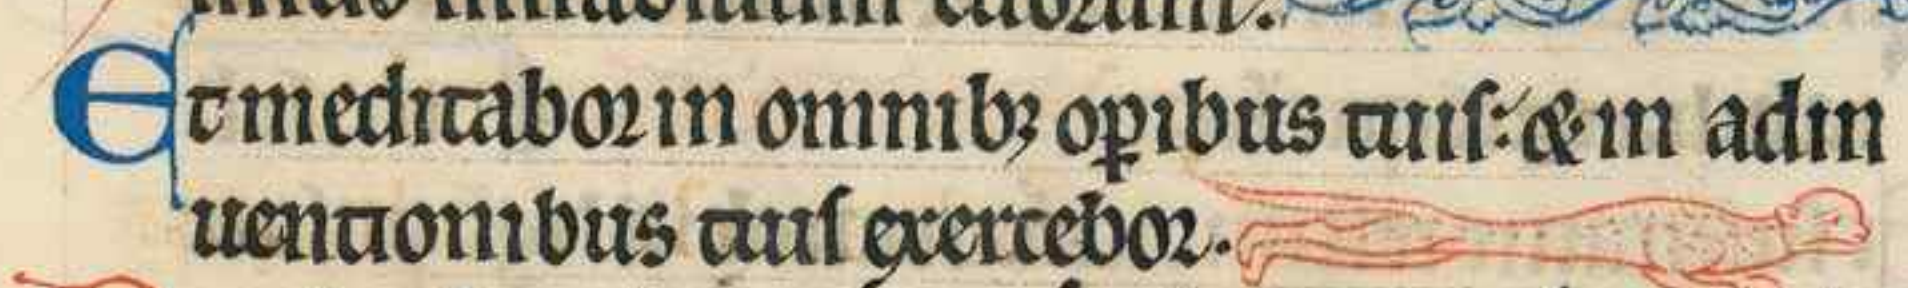 Et meditabor in omnibꝫ oꝑibus tuis: & in adin
uentionibus tuis exercebor.